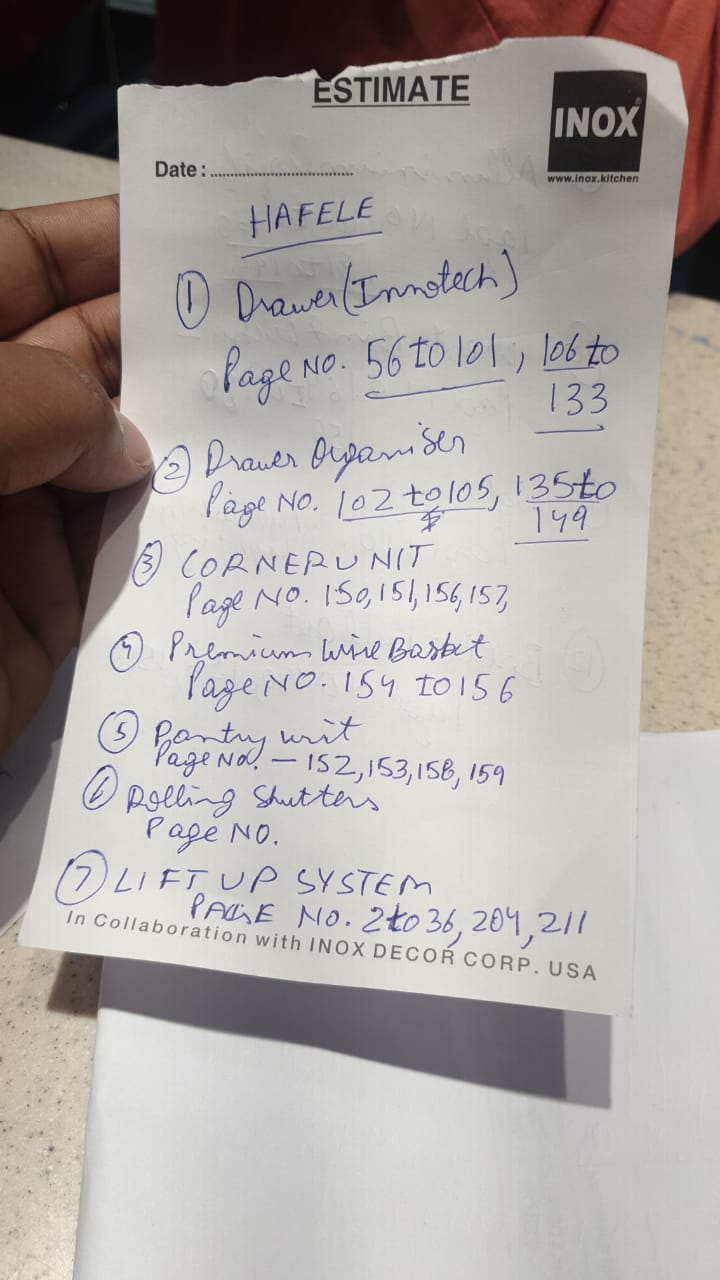 ESTIMATE
INOX
www.inox.kitchen
Date : ....................................
HAFELE
① Drawer (Innotech)
Page NO. 56 to 101, 106 to
133
② Drawer Organiser
Page NO. 102 to 105, 135 to
149
③ CORNER UNIT
Page NO. 150, 151, 156, 157,
④ Premium Wire Basket
Page NO. 154 TO 156
⑤ Pantry unit
Page No. — 152, 153, 158, 159
⑥ Rolling Shutters
Page NO.
⑦ LIFT UP SYSTEM
PAGE NO. 2 to 36, 204, 211
In Collaboration with INOX DECOR CORP. USA